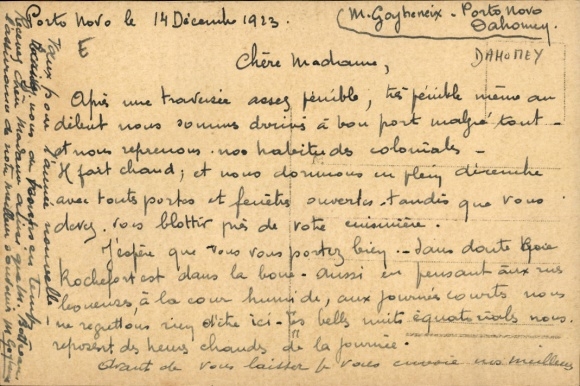 Porto Novo le 14 Décembre 1923.
(M. Gayheneix - Porto Novo
Dahomey
E
DAHOMEY
Chère Madame,
Après une traversée assez pénible, très pénible même au
début nous sommes arrivés à bon port malgré tout -
et nous reprenons nos habitudes coloniales -
Il fait chaud; et nous dormons en plein décembre
avec toutes portes et fenêtres ouvertes - tandis que vous
devez vous blottir près de votre cuisinière.
J'espère que vous vous portez bien - Sans doute que
Rochefort est dans la boue - aussi en pensant aux rues
boueuses, à la cour humide, aux journées courtes nous
ne regrettons rien d'être ici - les belles nuits équatoriales nous
reposent des heures chaudes de la journée.
Avant de vous laisser je vous envoie nos meilleurs
vœux pour l'année nouvelle -
nous de temps en temps
Recevez chère Madame ainsi que
l'assurance de notre meilleur souvenir M. Gayheneix